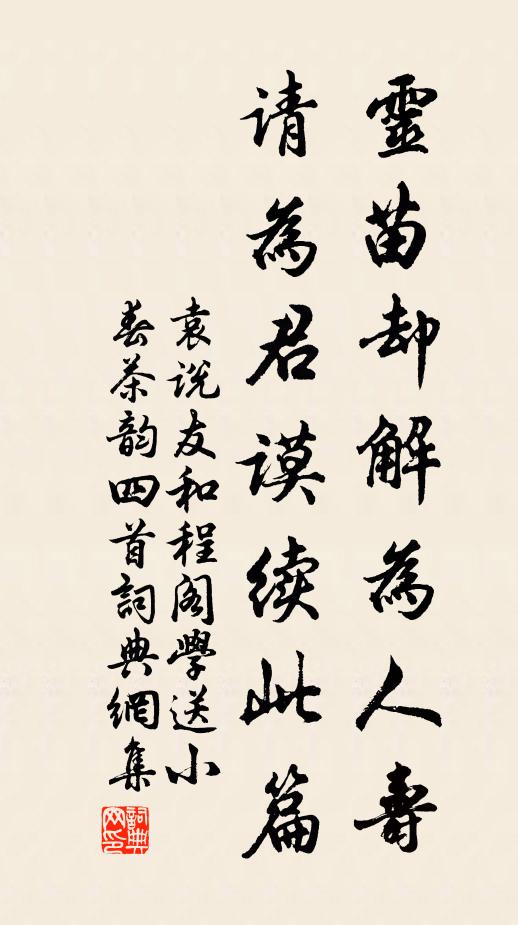 靈苗却解為人壽
请為君谟续此篇
袁说友和程阁學送小
春茶韵四首詞典網集
詞典网印